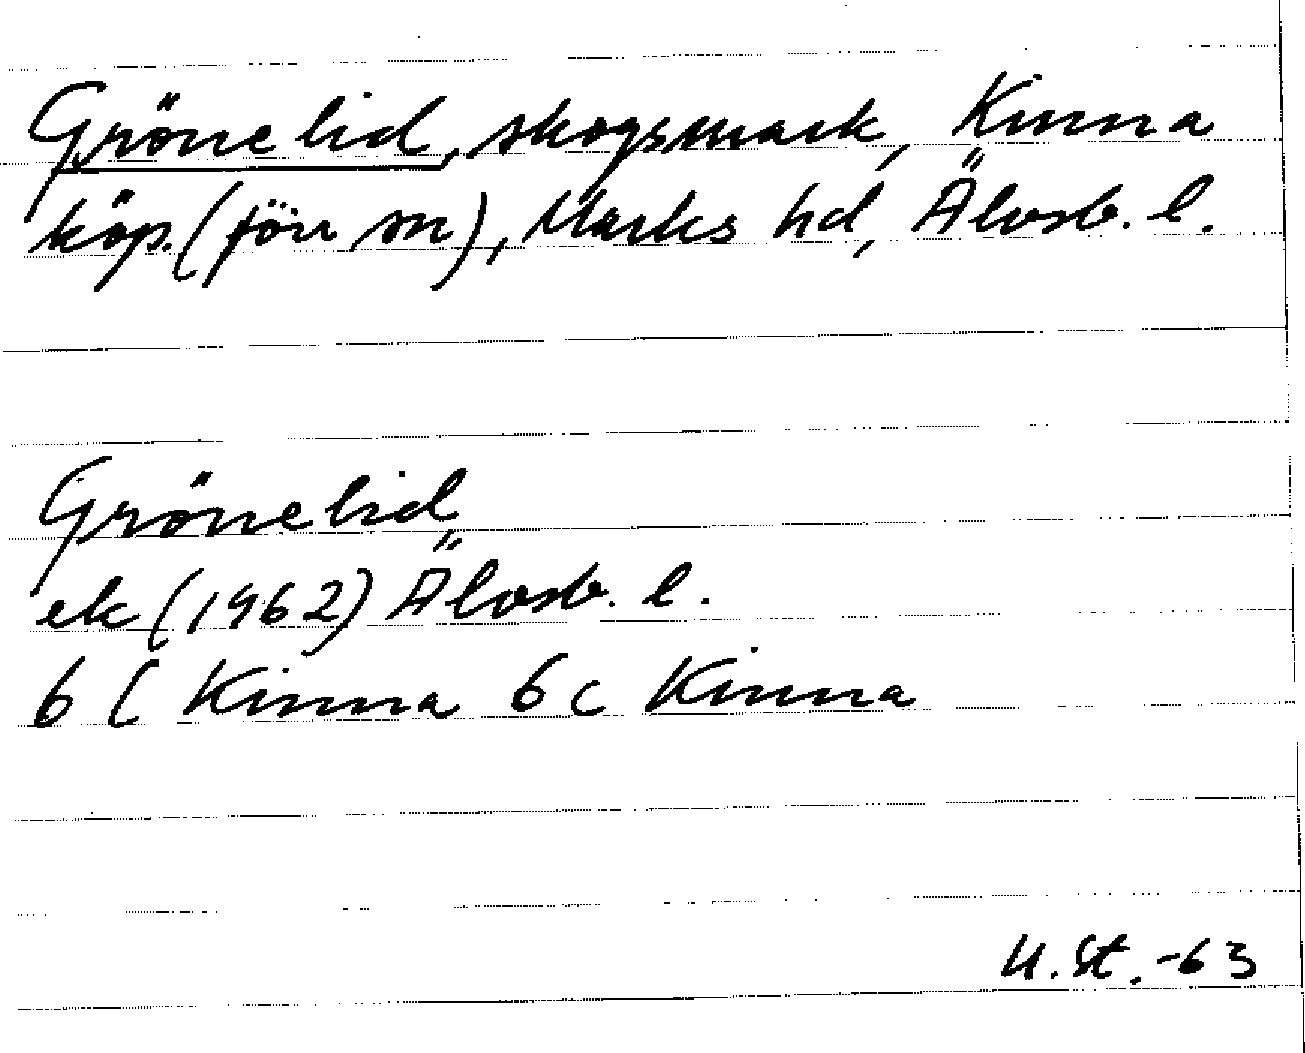 Grönelid, skogsmark, Kinna
köp. (förr sn), Marks hd, Älvsb. l.
Grönelid
ek (1962) Älvsb. l.
6 C Kinna 6 c Kinna
U. St. -63